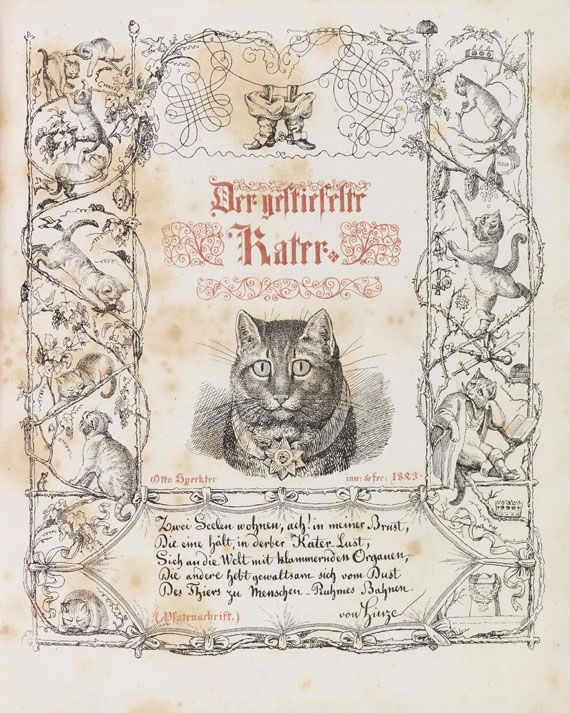 Der gestiefelte
Kater.
Otto Speckter
inv: & fec: 1843.
Zwei Seelen wohnen, ach! in meiner Brust,
Die eine hält, in derber Kater-Lust,
Sich an die Welt mit klammernden Organen;
Die andere hebt gewaltsam sich vom Dust
Des Thiers zu Menschen-Ruhmes Bahnen.
(Pfotenschrift.)
von Hinze